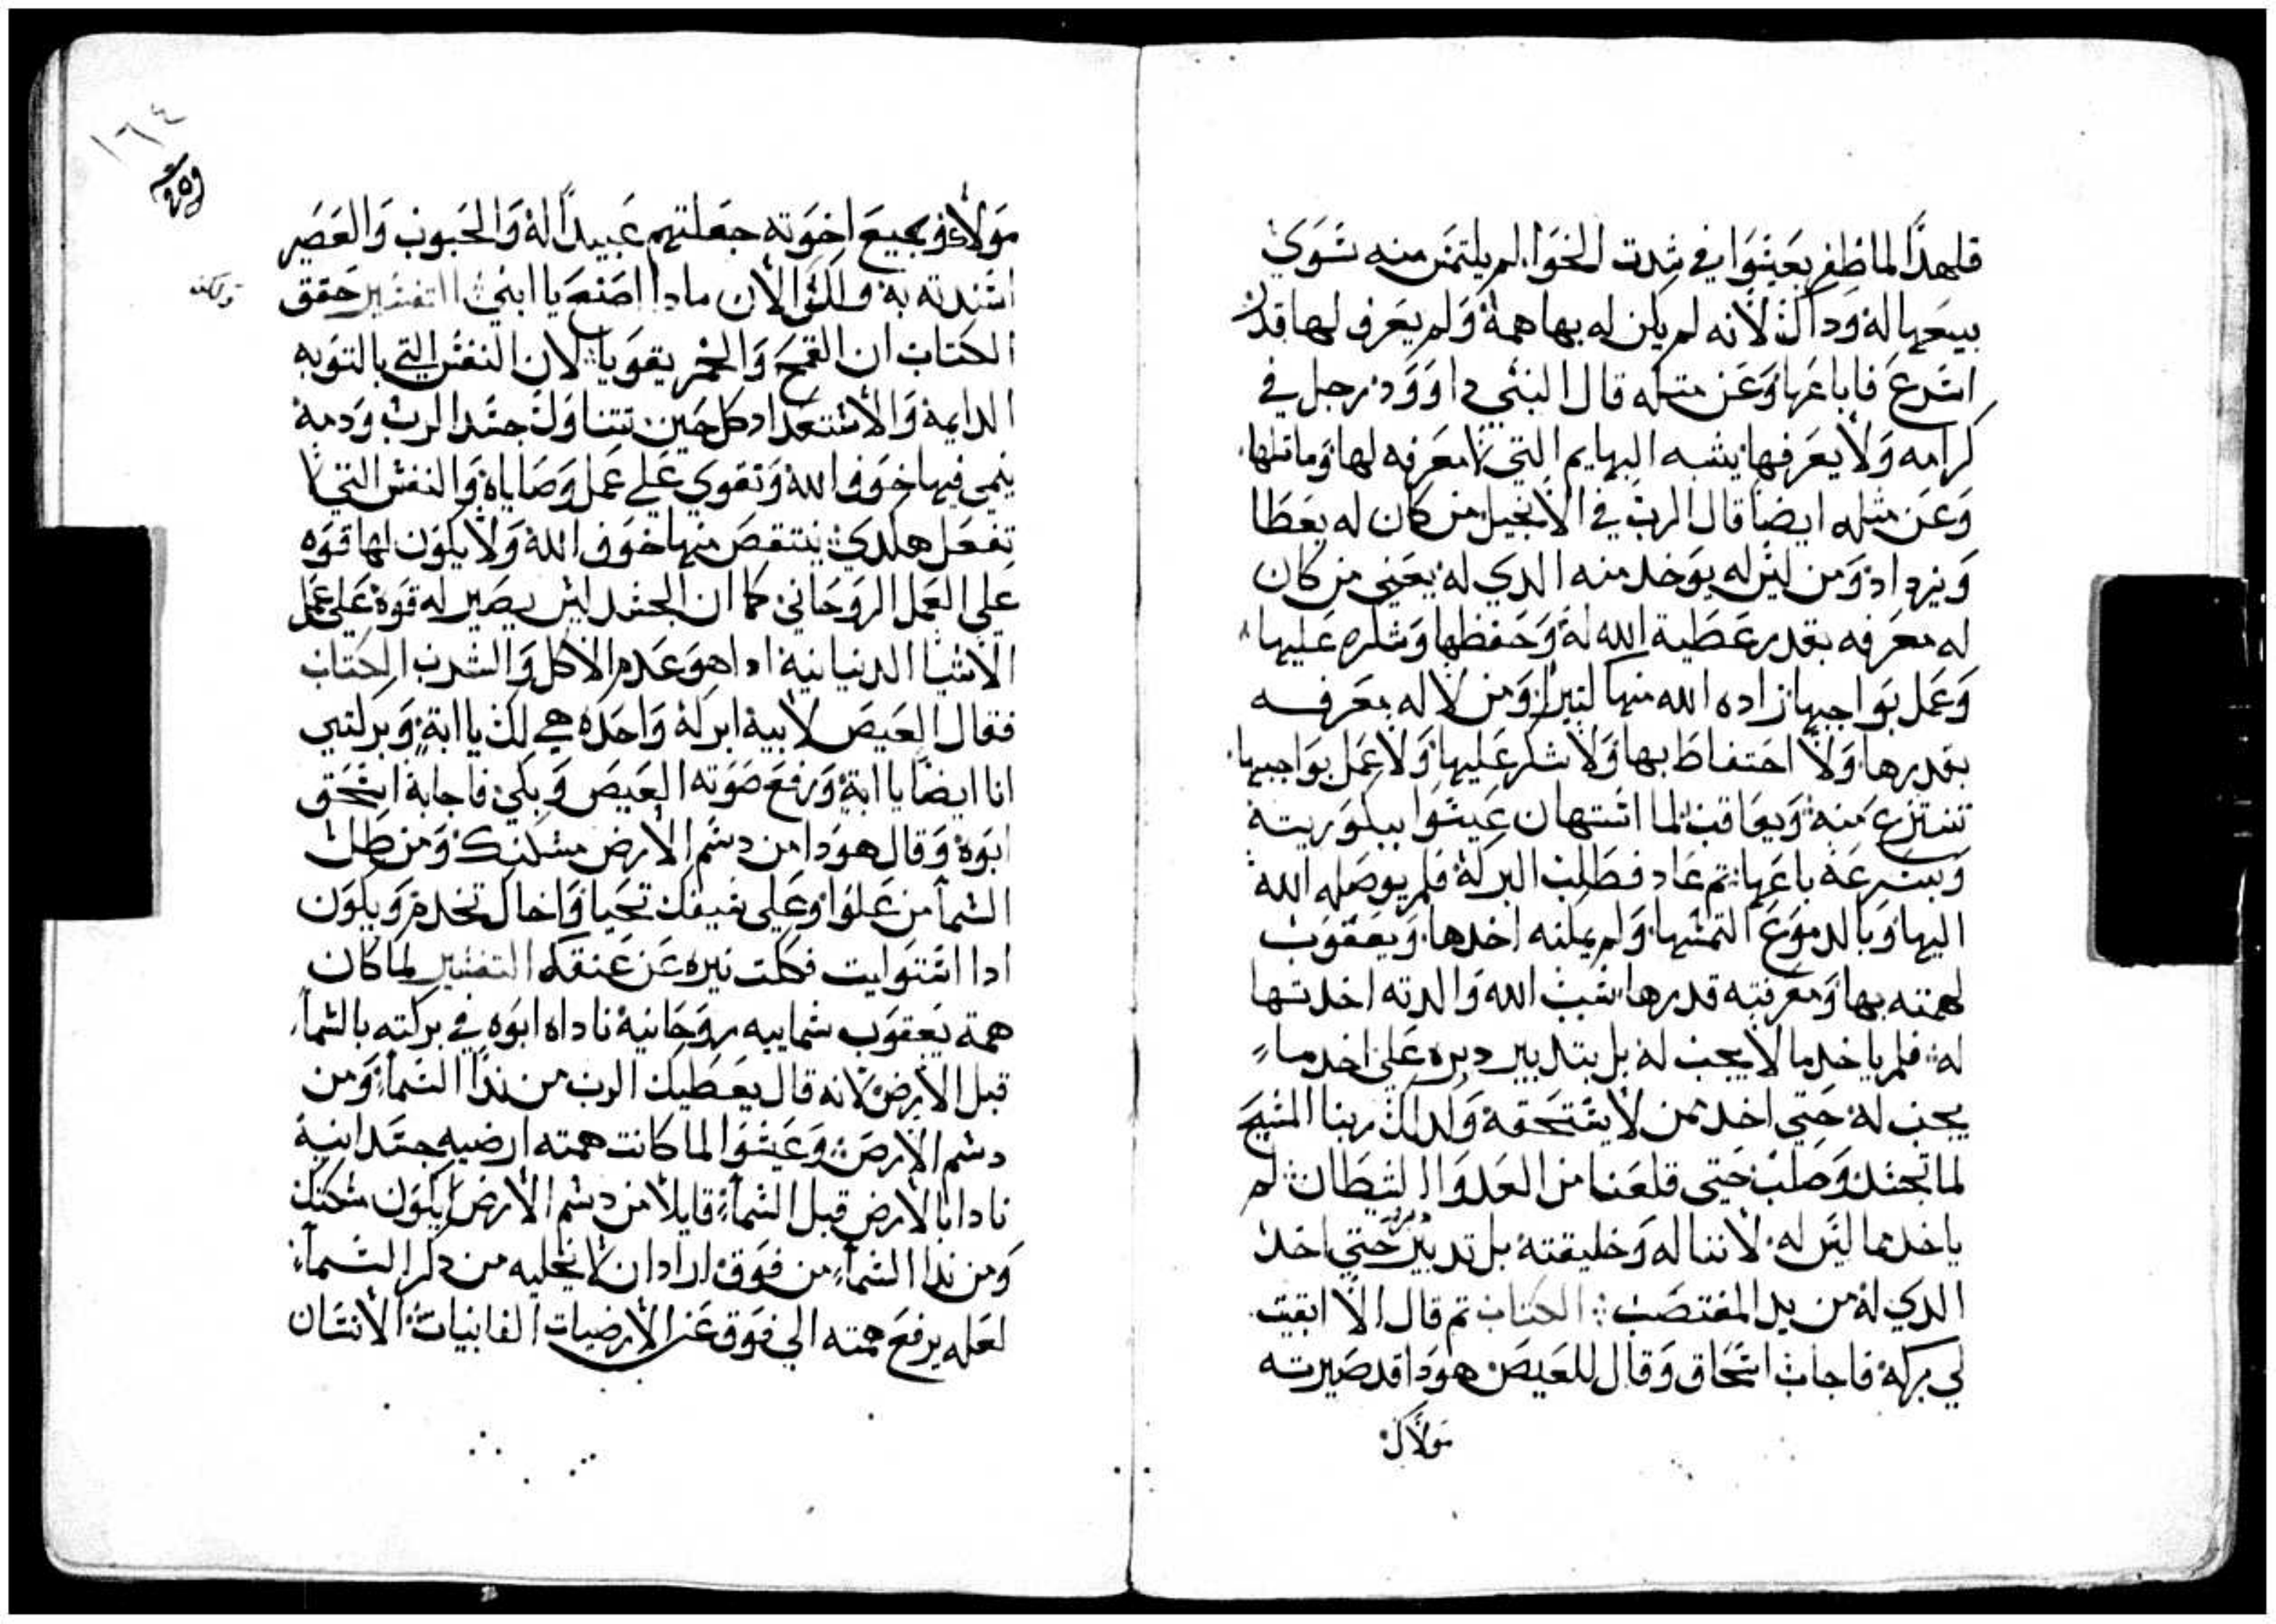 فلهدا لما ظفر بعيسوا في شدت الخوا لم يلتمس منه سوي
بيعها له وداك لانه لم يكن له بها همة ولم يعرف لها قدر
اسرع فاباعها وعن مثله قال النبي داوود رجل في
كرامه ولا يعرفها يشبه البهايم التي لا معرفه لها وماثلها
وعن مثله ايضا قال الرب في الانجيل من كان له يعطا
ويزداد ومن ليس له يوخد منه الدي له يعني من كان
له معرفه بقدر عطية الله له وحفظها وشكره عليها
وعمل بواجبها زاده الله منها كتيرا ومن لا له معرفه
بقدرها ولا احتفاط بها ولا شكر عليها ولا عمل بواجبها
تنتزع منه ويعاقب لما استهان عيسوا ببكوريته
وبسرعه باعها تم عاد فطلب البركة فلم يوصله الله
اليها وبالدموع التمسها ولم يمكنه اخدها ويعقوب
لهمته بها ومعرفته قدرها سبب الله والدته اخدتها
له فلم ياخد ما لا يجب له بل بتدبير دبره علي اخد ما
يجب له حتي اخد ممن لا يستحقه ولدلك ربنا المسيح
لما تجسد وصلب حتي قلعنا من العدو الشيطان لم
ياخد ما ليس له لاننا له وخليقته بل تدبير حتي اخد
الدي له من يد المغتصب الكتاب تم قال الا ابقيت
لي بركة فاجاب اسحاق وقال للعيص هودا قد صيرته
مولاك
١٦٤
مولاك وجميع اخوته جعلتهم عبيدا له والحبوب والعصير
اسندته به ولك الان مادا اصنع يا ابني التفسير حقق
الكتاب ان القمح والخمر يقويا لان النفس التي بالتوبه
الدايمة والاستعداد كل حين تتناول جسد الرب ودمه
ينمي فيها خوف الله وتقوي علي عمل وصاياه والنفس التي لا
تفعل هكدي ينتقص منها خوف الله ولا يكون لها قوه
علي العمل الروحاني كما ان الجسد ليس يصير له قوة علي عمل
الاشيا الدنيانية ادا هو عدم الاكل والشرب الكتاب
فقال العيص لابية ابركة واحده هي لك يا ابة وبركني
انا ايضا يا ابة ورفع صوته العيص وبكي فاجابة اسحق
ابوه وقال هودا من دسم الارض مسكنك ومن طل
السما من علوا وعلي سيفك تحيا واخاك تخدم ويكون
ادا استوليت فككت نيره عن عنقك التفسير لما كان
همة يعقوب سماييه روحانية ناداه ابوه في بركته بالسما
قبل الارض لانه قال يعطيك الرب من ندا السما ومن
دسم الارض وعيسوا لما كانت همته ارضيه جسدانية
نادا بالارض قبل السما قايلا من دسم الارض يكون مسكنك
ومن ندا السما من فوق اراد ان لا يخليه من دكر السما
لعله يرفع همته الي فوق عن الارضيات الفانيات الانسان